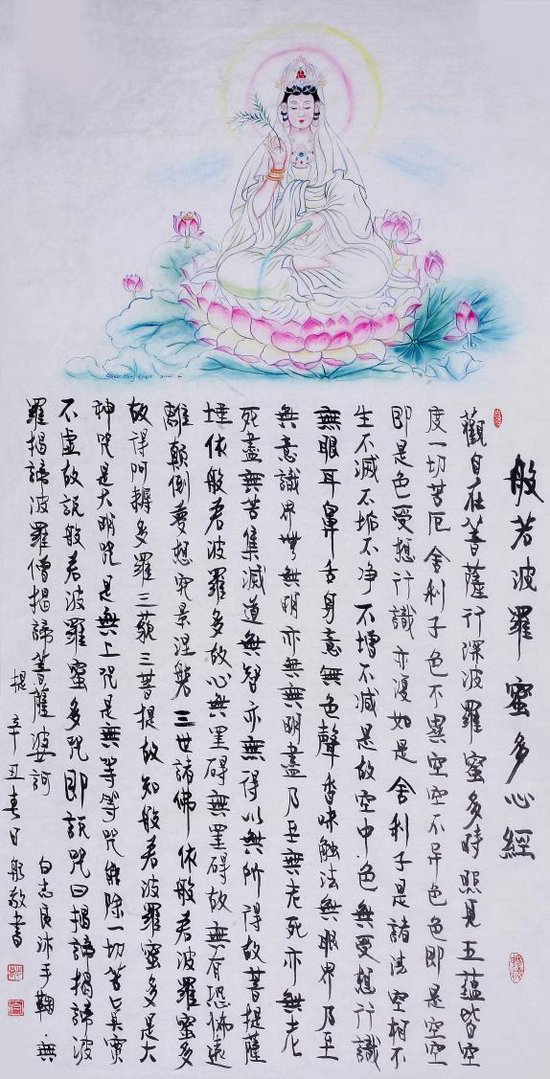 般若波羅蜜多心經
觀自在菩薩行深波羅蜜多時照見五蘊皆空
度一切苦厄舍利子色不異空空不异色色即是空空
即是色受想行識亦復如是舍利子是諸法空相不
生不滅不垢不净不增不減是故空中色無受想行識
無眼耳鼻舌身意無色聲香味触法無眼界乃至
無意識界無無明亦無無明盡乃至無老死亦無老
死盡無苦集滅道無智亦無得以無所得故菩提薩
埵依般若波羅多故心無罣碍無罣碍故無有恐怖遠
離顛倒夢想究竟涅槃三世諸佛依般若波羅蜜多
故得阿耨多羅三藐三菩提故知般若波羅蜜多是大
神咒是大明咒是無上咒是無等等咒能除一切苦真實
不虛故說般若波羅蜜多咒即說咒曰揭諦揭諦波
羅揭諦波羅僧揭諦菩薩婆訶
提辛丑春日敬書